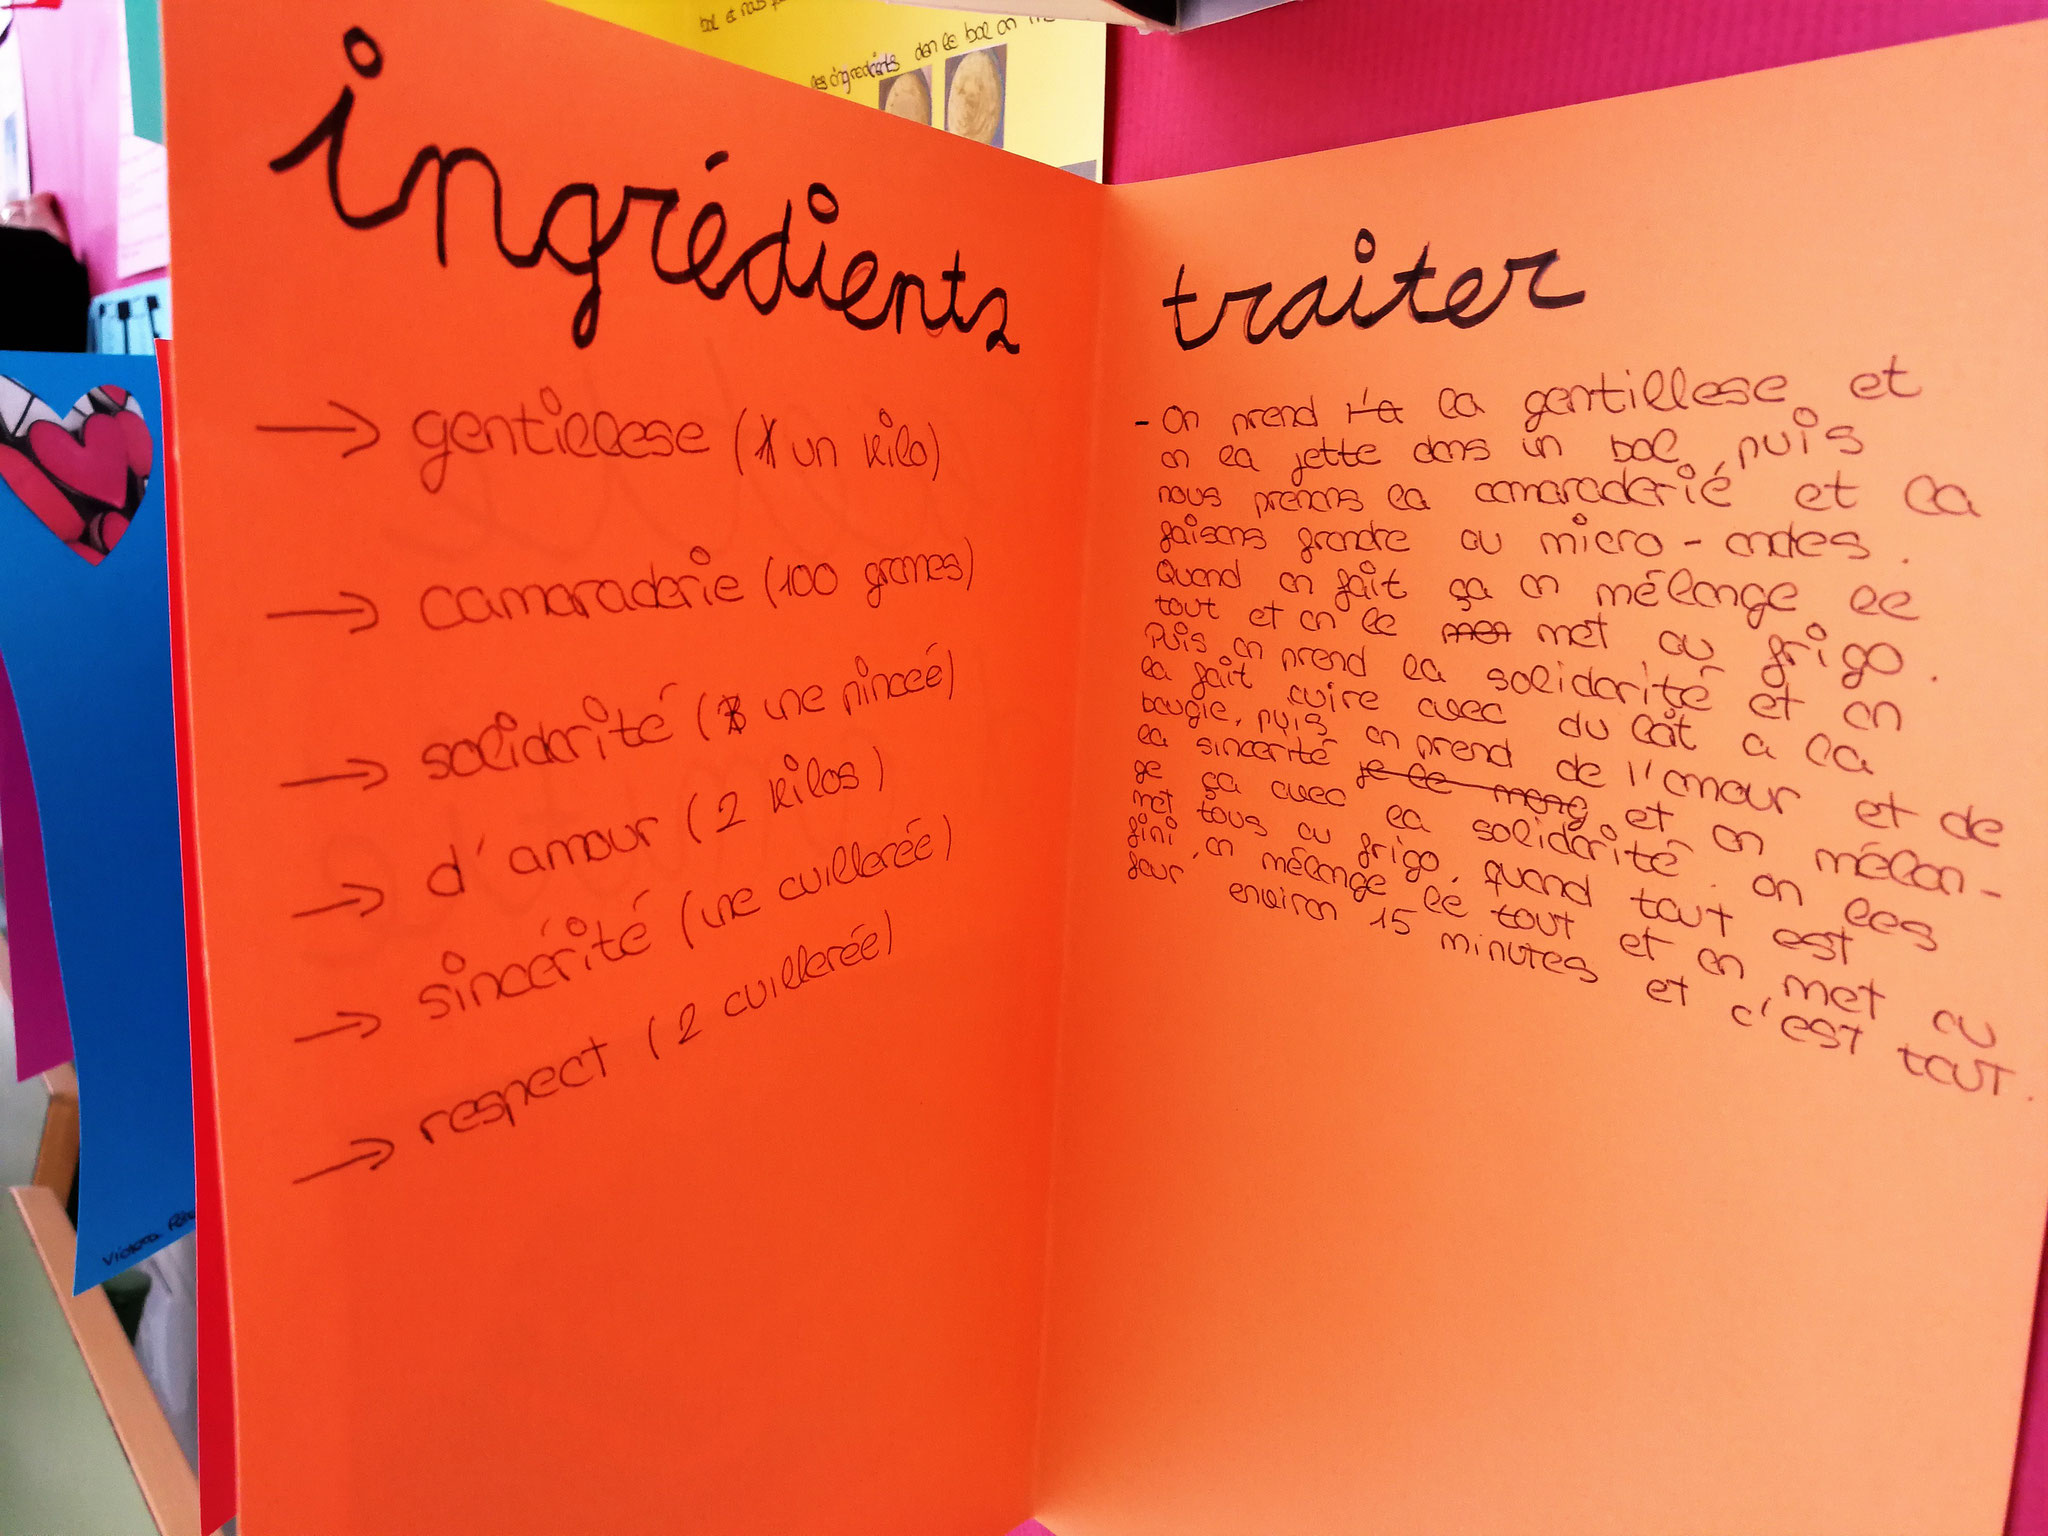 bol et nous
les ingredients dans le bol on
ingrédients
→ gentillese (un kilo)
→ camaraderie (100 grames)
→ solidarité (une pinceé)
→ d'amour (2 kilos)
→ sincérité (une cuillereé)
→ respect (2 cuillereé)
traiter
- On prend l'a la gentillese et
on la jette dans un bol, puis
nous prenons la camaraderié et la
faisons grondre au micro-ondes.
Quand on fait ça on mélange le
tout et on le men met au frigo.
Puis on prend la solidarité et on
la fait cuire avec du lât a la
bougie, puis on prend de l'amour et de
la sincerité je le meng et on mélan-
ge ça avec la solidarité. on les
met tous au frigo. quand tout est
fini, on mélange le tout et on met au
four environ 15 minutes et c'est tout.
Victoria